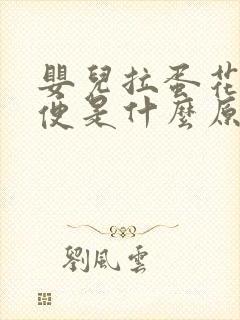 嬰兒拉蛋花
便是什麼原
劉風雲